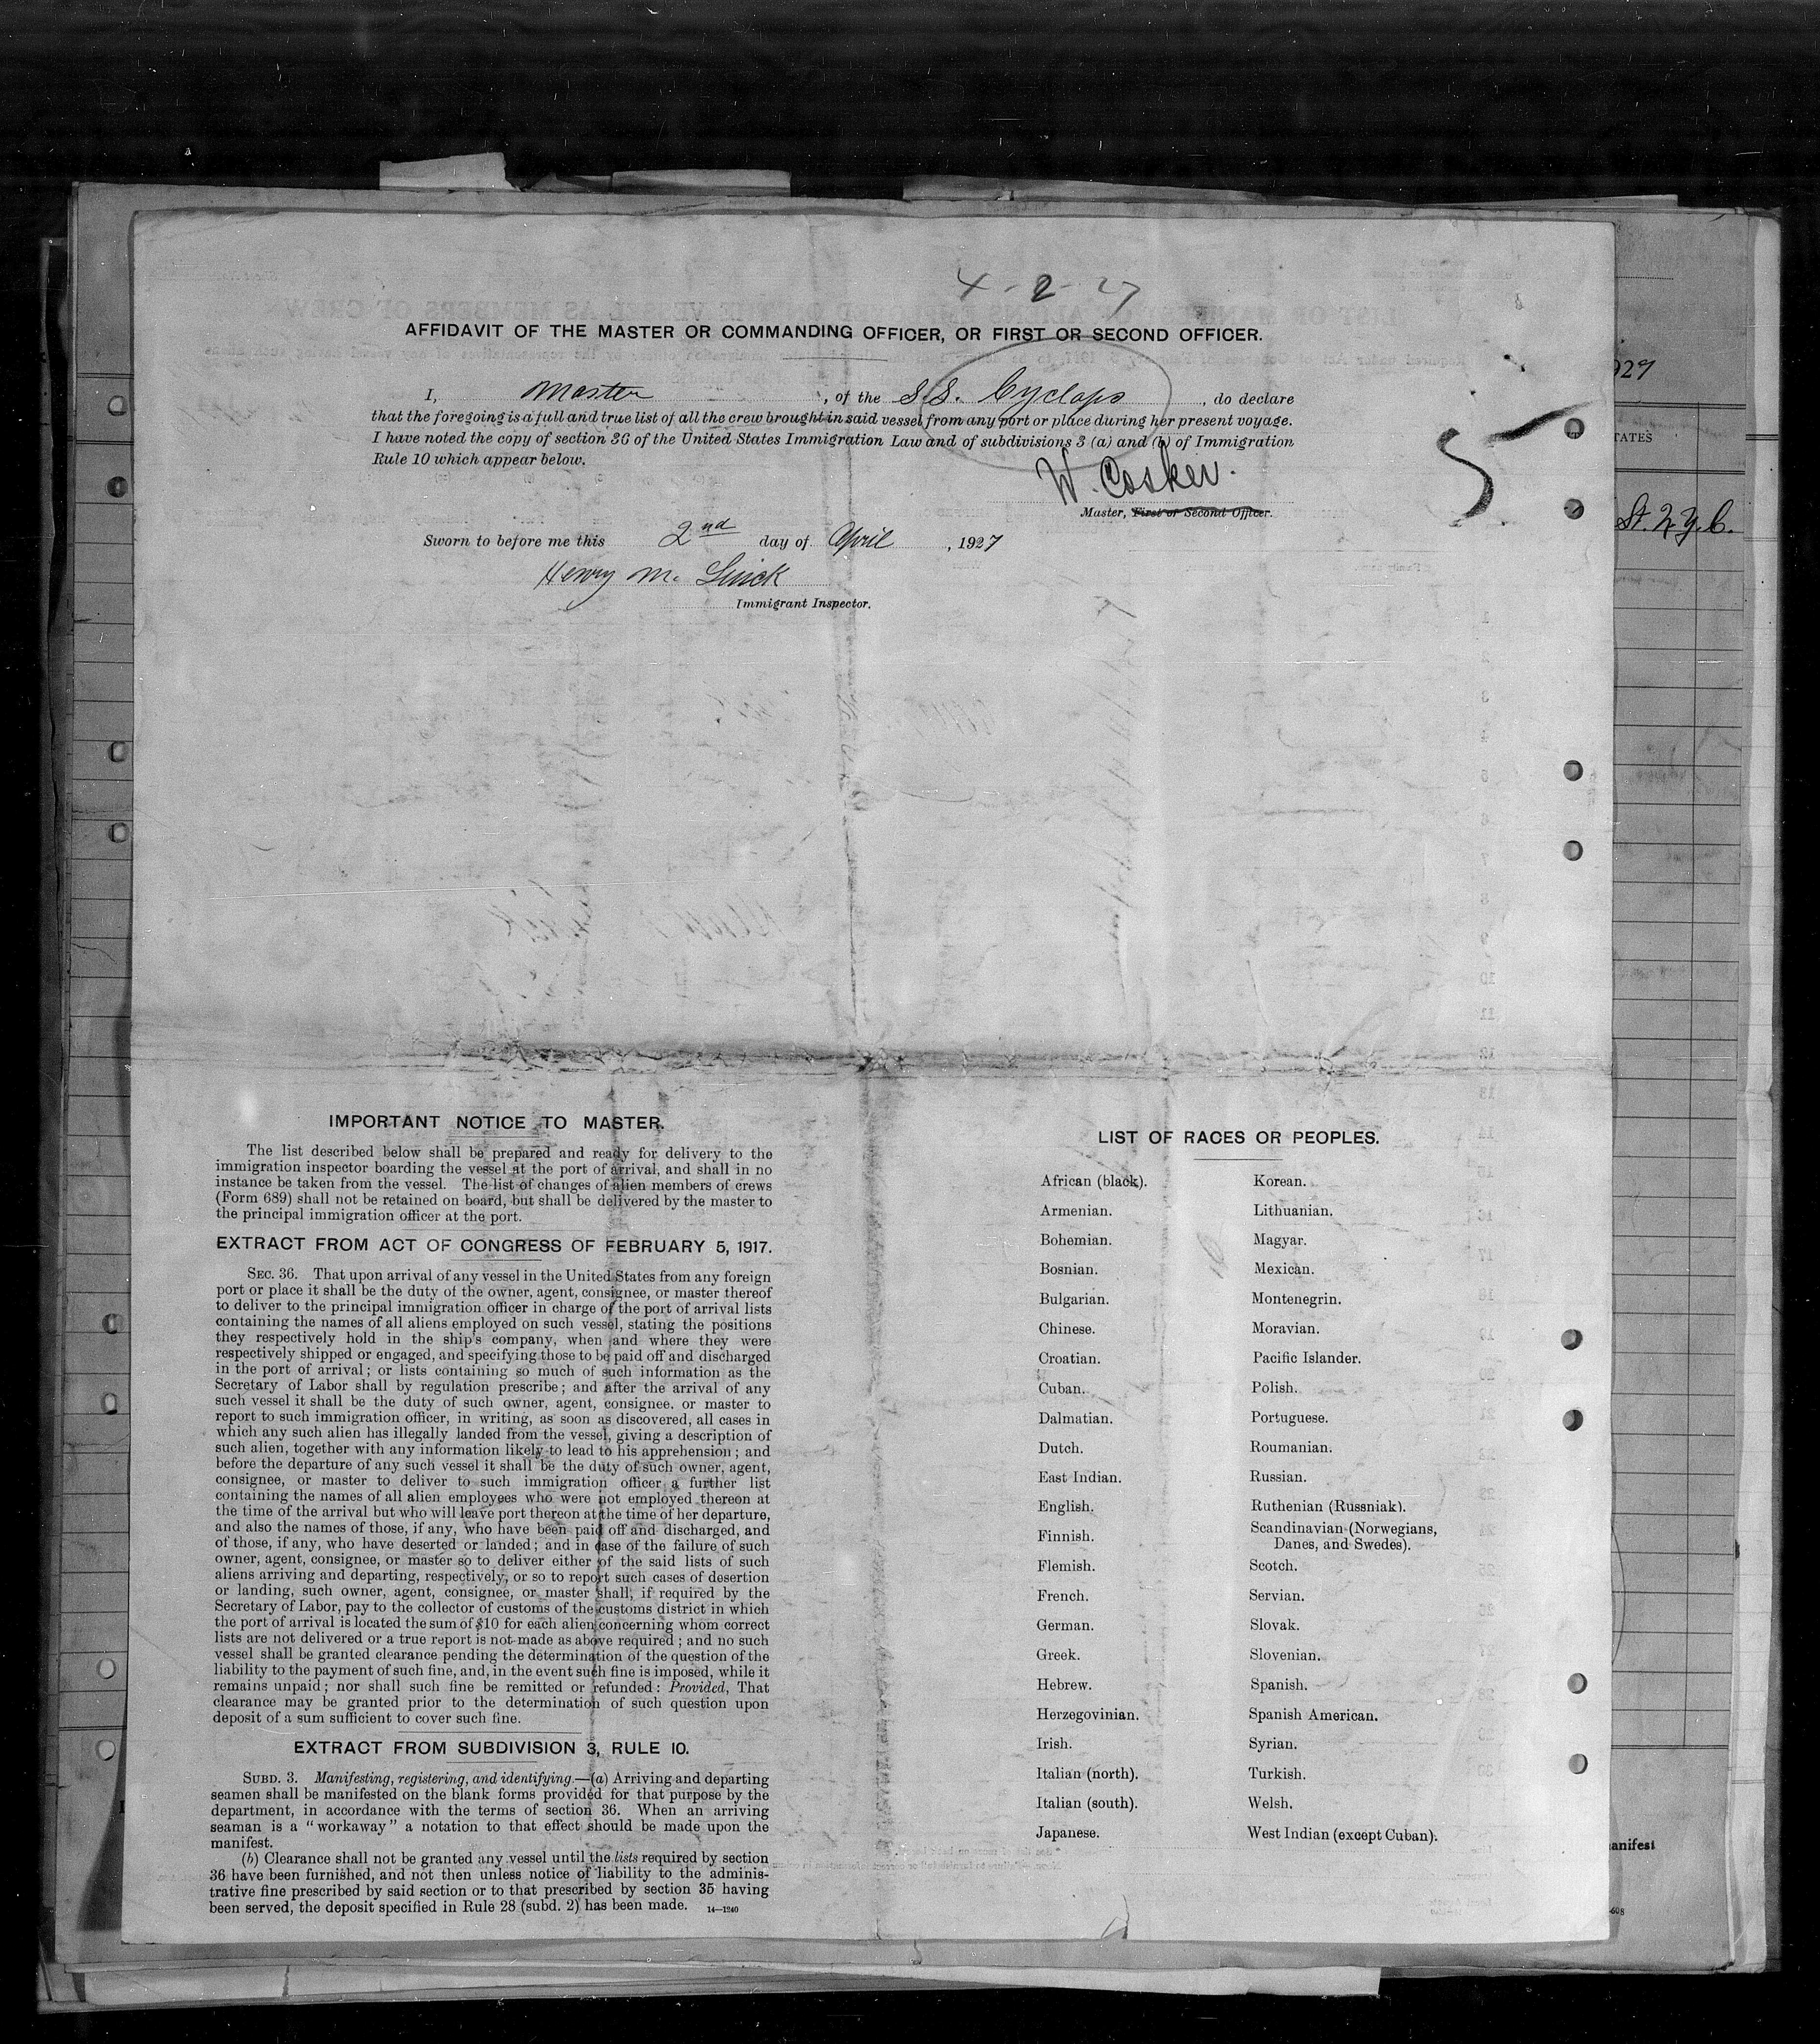 4-2-27
AFFIDAVIT OF THE MASTER OR COMMANDING OFFICER, OR FIRST OR SECOND OFFICER.
I, Master, of the S.S. Cyclops, do declare
that the foregoing is a full and true list of all the crew brought in said vessel from any port or place during her present voyage.
I have noted the copy of section 36 of the United States Immigration Law and of subdivisions 3 (a) and (b) of Immigration
Rule 10 which appear below.
W. Cosker.
Master, First or Second Officer.
5
Sworn to before me this 2nd day of April, 1927
Henry M.
Immigrant Inspector.
IMPORTANT NOTICE TO MASTER.
The list described below shall be prepared and ready for delivery to the
immigration inspector boarding the vessel at the port of arrival, and shall in no
instance be taken from the vessel. The list of changes of alien members of crews
(Form 689) shall not be retained on board, but shall be delivered by the master to
the principal immigration officer at the port.
EXTRACT FROM ACT OF CONGRESS OF FEBRUARY 5, 1917.
SEC. 36. That upon arrival of any vessel in the United States from any foreign
port or place it shall be the duty of the owner, agent, consignee, or master thereof
to deliver to the principal immigration officer in charge of the port of arrival lists
containing the names of all aliens employed on such vessel, stating the positions
they respectively hold in the ship's company, when and where they were
respectively shipped or engaged, and specifying those to be paid off and discharged
in the port of arrival; or lists containing so much of such information as the
Secretary of Labor shall by regulation prescribe; and after the arrival of any
such vessel it shall be the duty of such owner, agent, consignee, or master to
report to such immigration officer, in writing, as soon as discovered, all cases in
which any such alien has illegally landed from the vessel, giving a description of
such alien, together with any information likely to lead to his apprehension; and
before the departure of any such vessel it shall be the duty of such owner, agent,
consignee, or master to deliver to such immigration officer a further list
containing the names of all alien employees who were not employed thereon at
the time of the arrival but who will leave port thereon at the time of her departure,
and also the names of those, if any, who have been paid off and discharged, and
of those, if any, who have deserted or landed; and in case of the failure of such
owner, agent, consignee, or master so to deliver either of the said lists of such
aliens arriving and departing, respectively, or so to report such cases of desertion
or landing, such owner, agent, consignee, or master shall, if required by the
Secretary of Labor, pay to the collector of customs of the customs district in which
the port of arrival is located the sum of $10 for each alien concerning whom correct
lists are not delivered or a true report is not made as above required; and no such
vessel shall be granted clearance pending the determination of the question of the
liability to the payment of such fine, and, in the event such fine is imposed, while it
remains unpaid; nor shall such fine be remitted or refunded: Provided, That
clearance may be granted prior to the determination of such question upon
deposit of a sum sufficient to cover such fine.
EXTRACT FROM SUBDIVISION 3, RULE 10.
SUBD. 3. Manifesting, registering, and identifying.—(a) Arriving and departing
seamen shall be manifested on the blank forms provided for that purpose by the
department, in accordance with the terms of section 36. When an arriving
seaman is a "workaway" a notation to that effect should be made upon the
manifest.
(b) Clearance shall not be granted any vessel until the lists required by section
36 have been furnished, and not then unless notice of liability to the adminis-
trative fine prescribed by said section or to that prescribed by section 35 having
been served, the deposit specified in Rule 28 (subd. 2) has been made. 14—1240
LIST OF RACES OR PEOPLES.
African (black).
Armenian.
Bohemian.
Bosnian.
Bulgarian.
Chinese.
Croatian.
Cuban.
Dalmatian.
Dutch.
East Indian.
English.
Finnish.
Flemish.
French.
German.
Greek.
Hebrew.
Herzegovinian.
Irish.
Italian (north).
Italian (south).
Japanese.
Korean.
Lithuanian.
Magyar.
Mexican.
Montenegrin.
Moravian.
Pacific Islander.
Polish.
Portuguese.
Roumanian.
Russian.
Ruthenian (Russniak).
Scandinavian (Norwegians,
Danes, and Swedes).
Scotch.
Servian.
Slovak.
Slovenian.
Spanish.
Spanish American.
Syrian.
Turkish.
Welsh.
West Indian (except Cuban).
927
TATES
St. N.Y.C.
anifest
-608